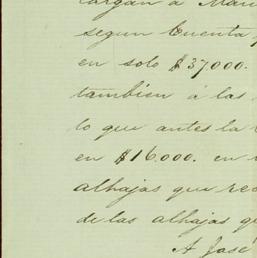 cargan á Mari
segun Cuenta
en solo $37,000.
tambien á las
lo que antes la
en $16.000. en
alhajas que rec
de las alhajas q
A José